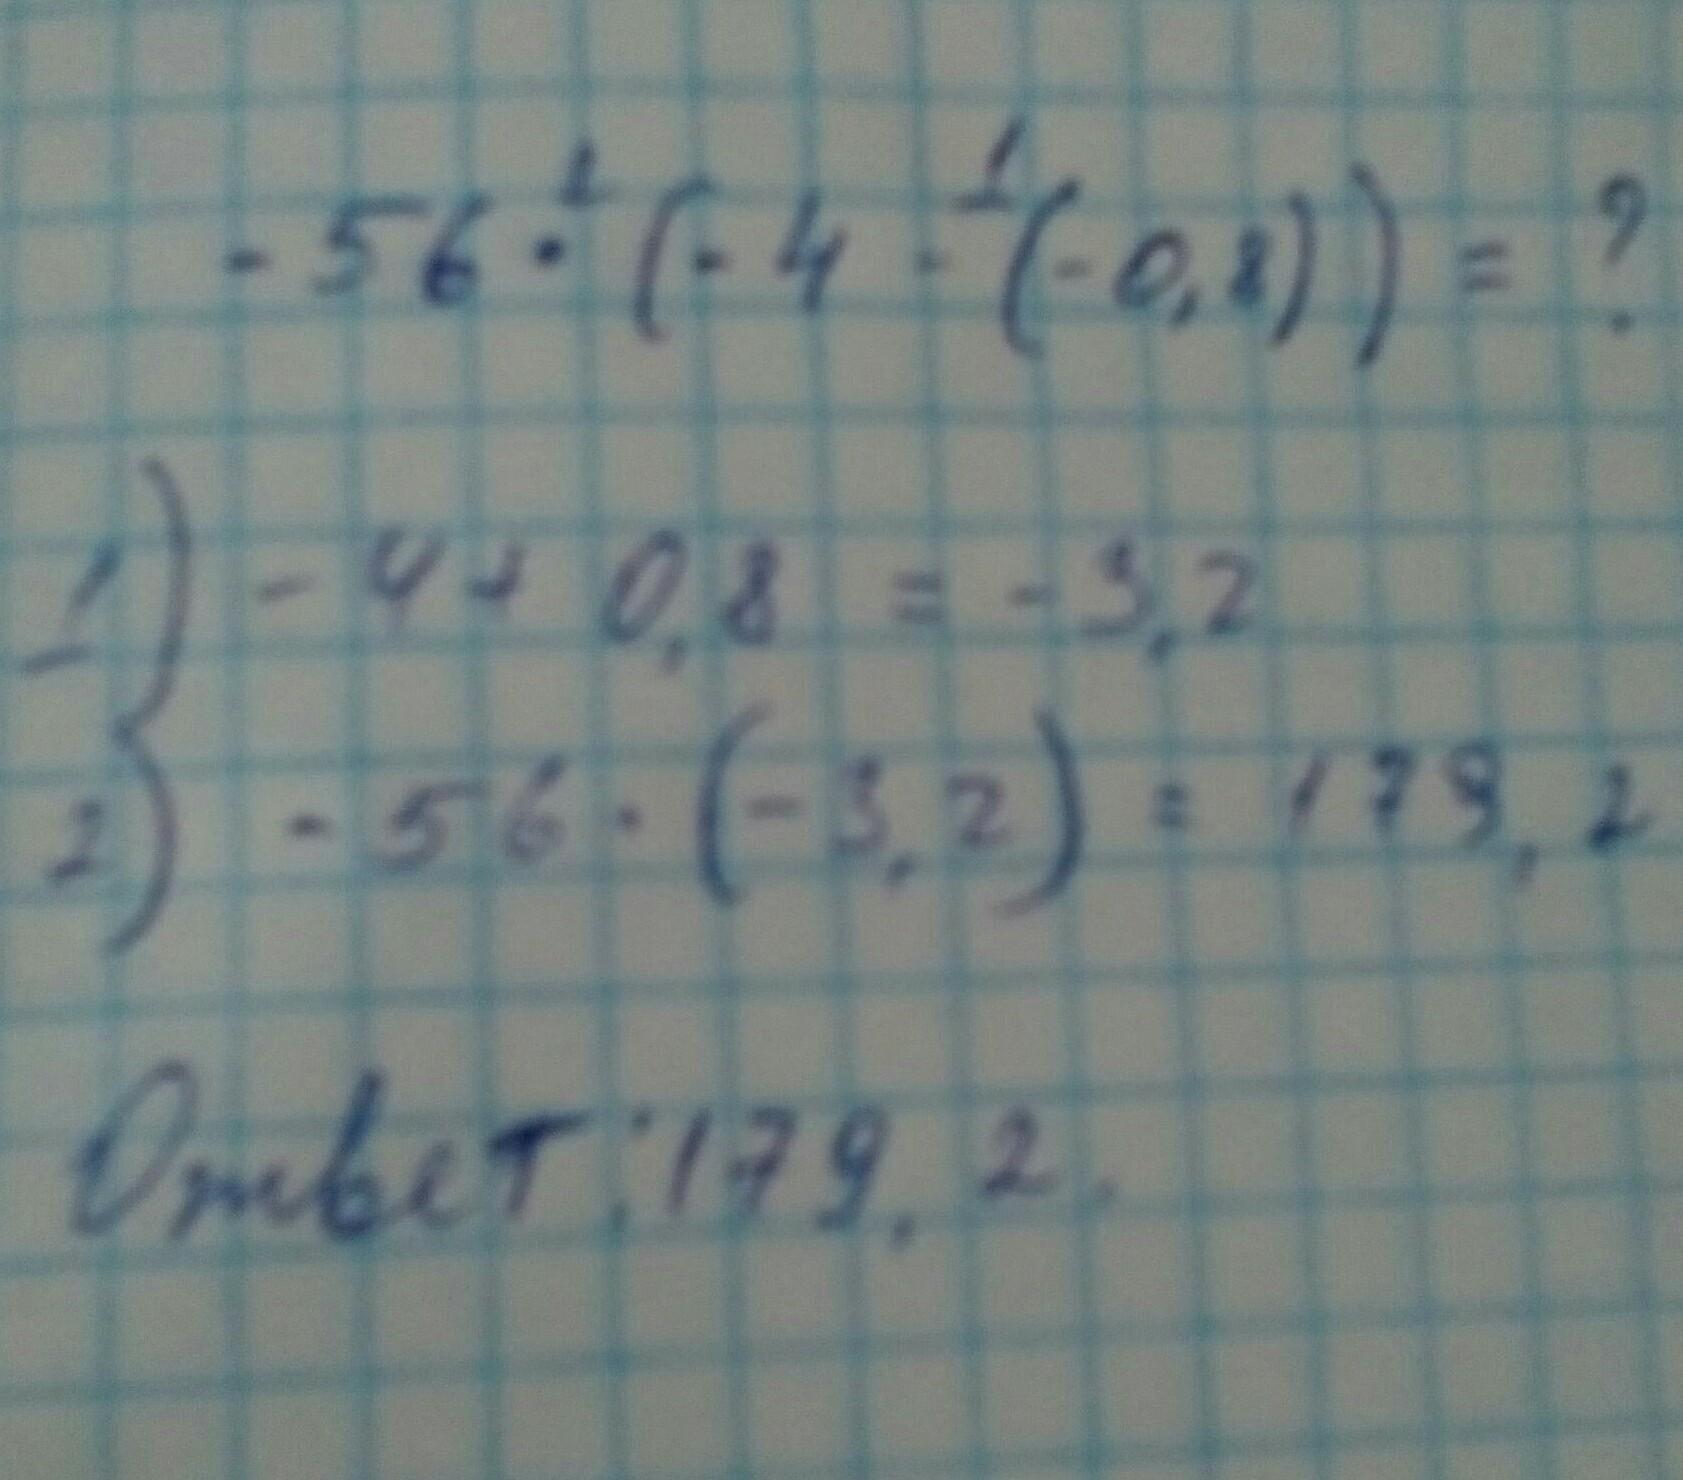 -56 · (-4 - (-0,8)) = ?
1) -4 + 0,8 = -3,2
2) -56 · (-3,2) = 179,2
Ответ: 179,2.